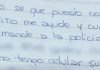 se que puedo con
ito me ayude y cu
mande a la policia
tiempo adular su